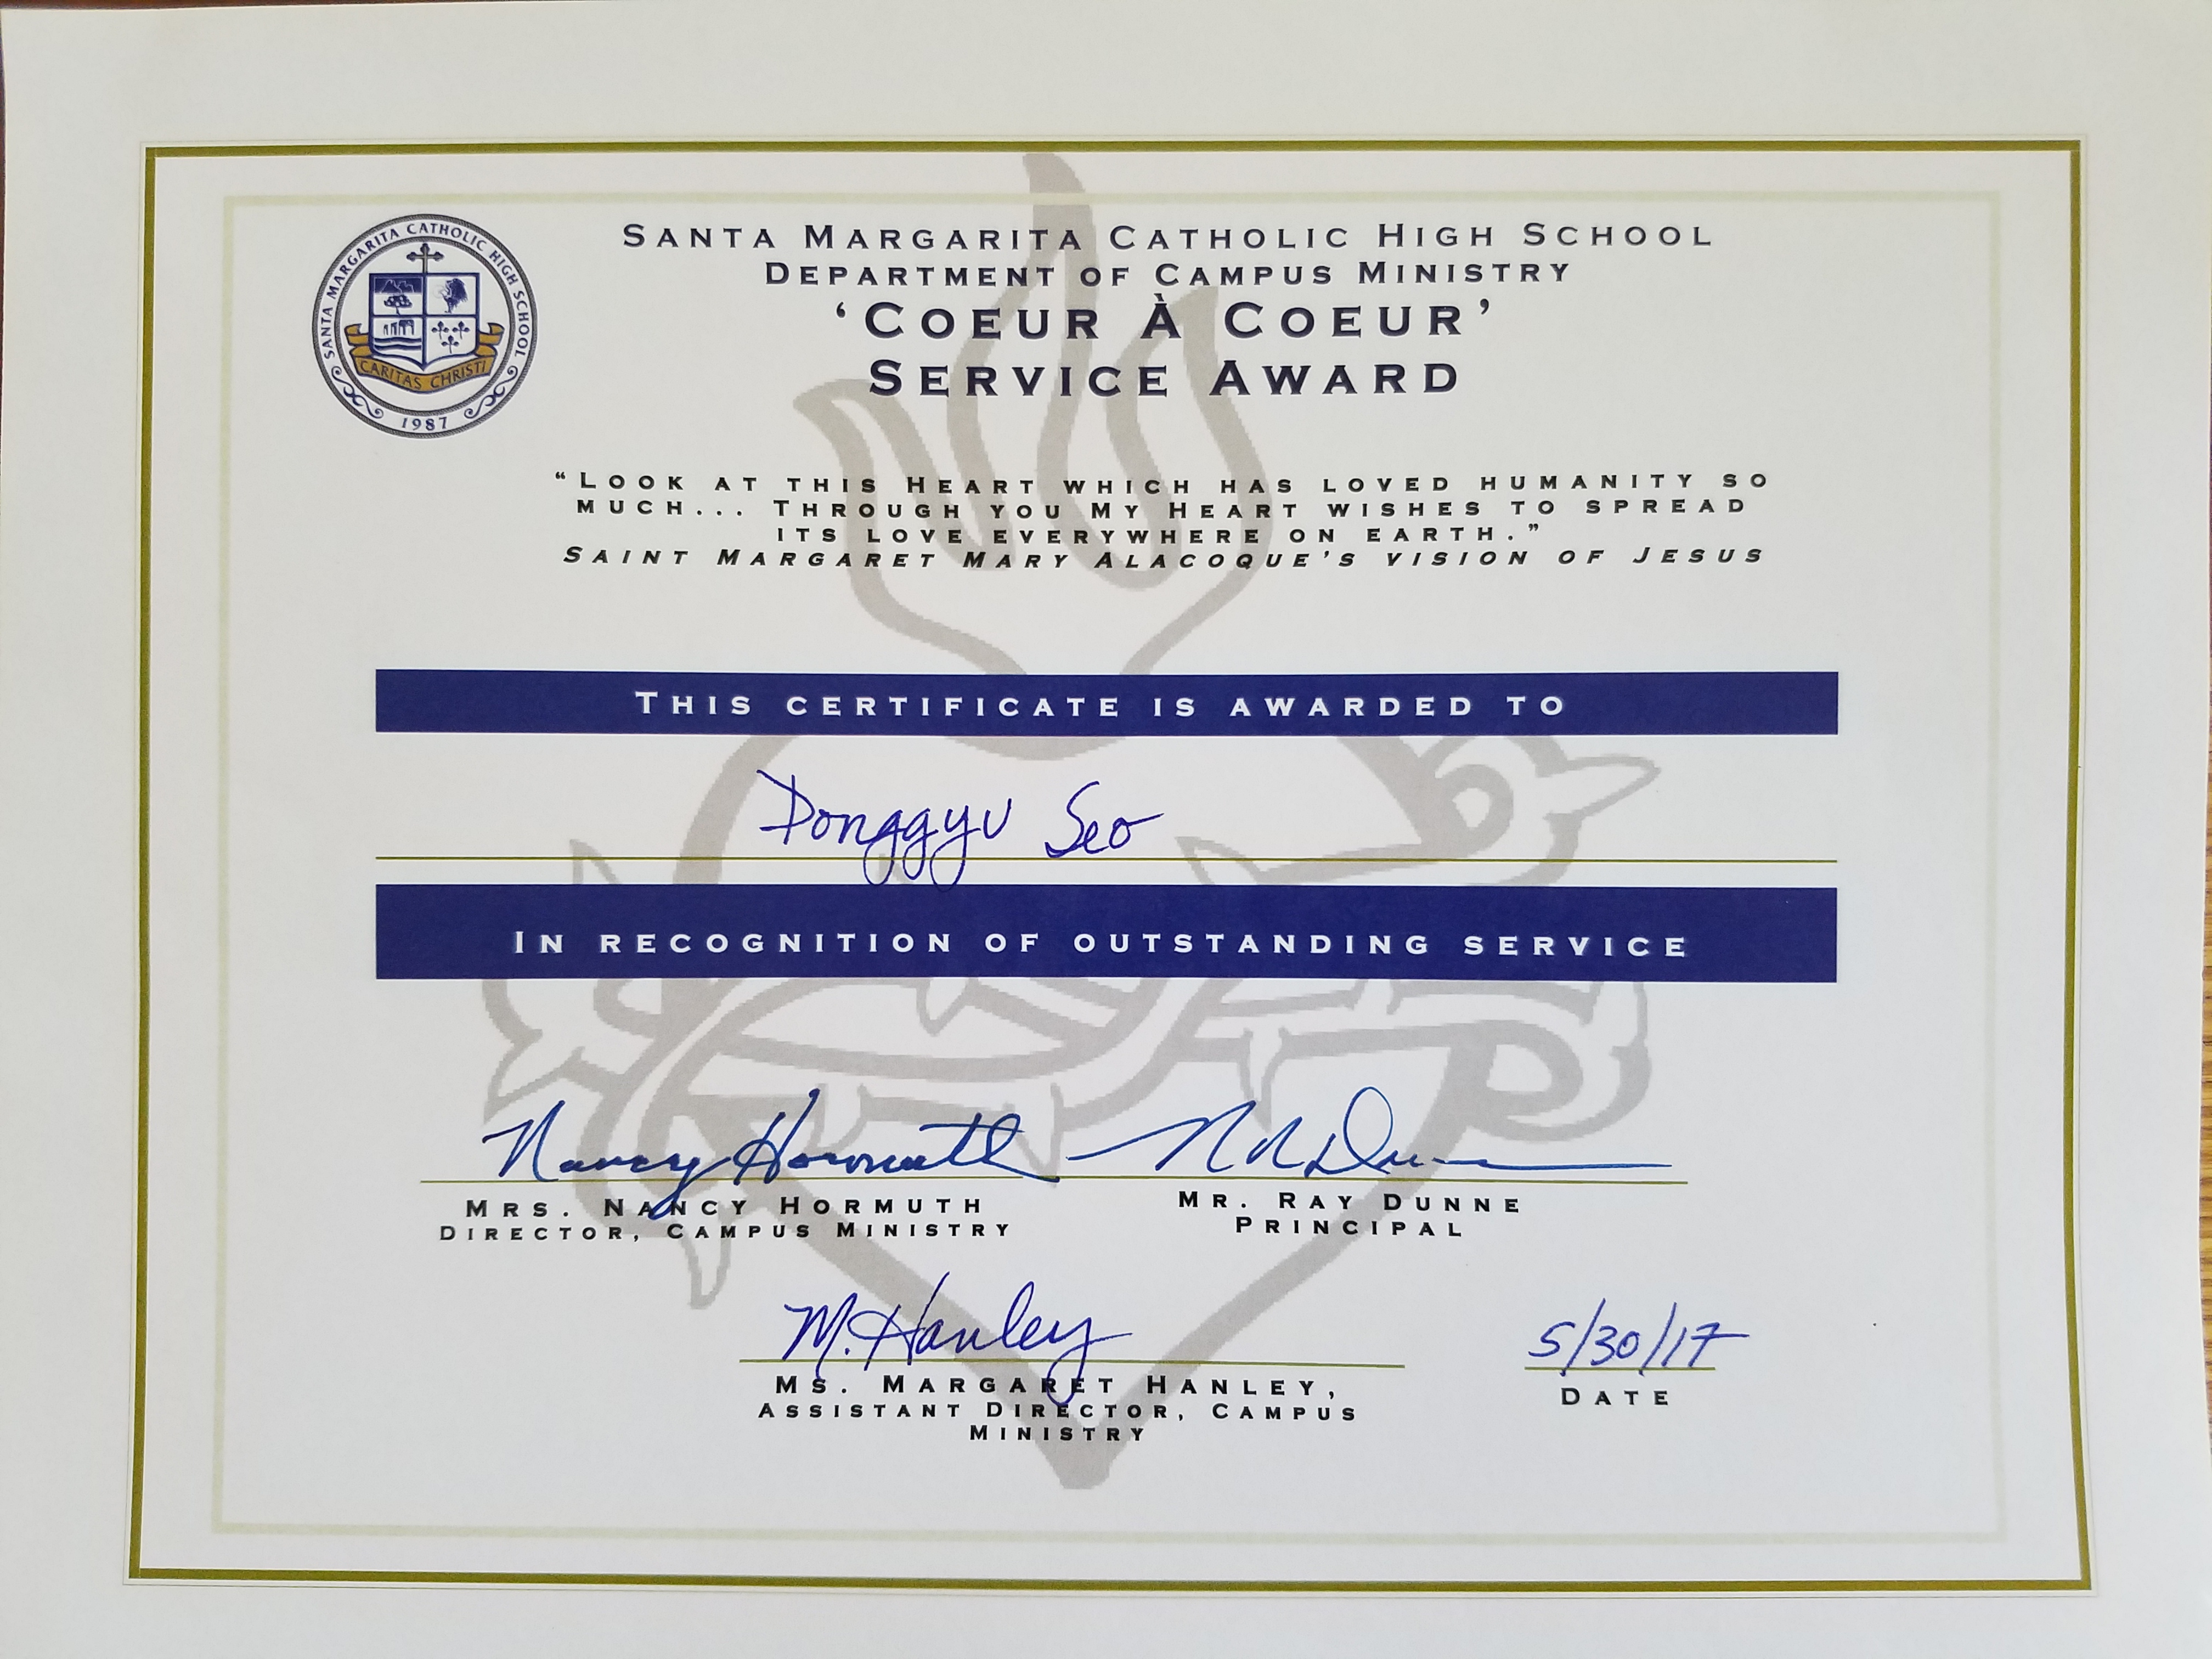 SANTA MARGARITA CATHOLIC HIGH SCHOOL
DEPARTMENT OF CAMPUS MINISTRY
‘COEUR À COEUR’
SERVICE AWARD
SANTA MARGARITA CATHOLIC HIGH SCHOOL
CARITAS CHRISTI
1987
“LOOK AT THIS HEART WHICH HAS LOVED HUMANITY SO
MUCH... THROUGH YOU MY HEART WISHES TO SPREAD
ITS LOVE EVERYWHERE ON EARTH.”
SAINT MARGARET MARY ALACOQUE’S VISION OF JESUS
THIS CERTIFICATE IS AWARDED TO
Donggyu Seo
IN RECOGNITION OF OUTSTANDING SERVICE
Nancy Hormuth
MRS. NANCY HORMUTH
DIRECTOR, CAMPUS MINISTRY
MR. RAY DUNNE
PRINCIPAL
M. Hanley
MS. MARGARET HANLEY,
ASSISTANT DIRECTOR, CAMPUS
MINISTRY
5/30/17
DATE